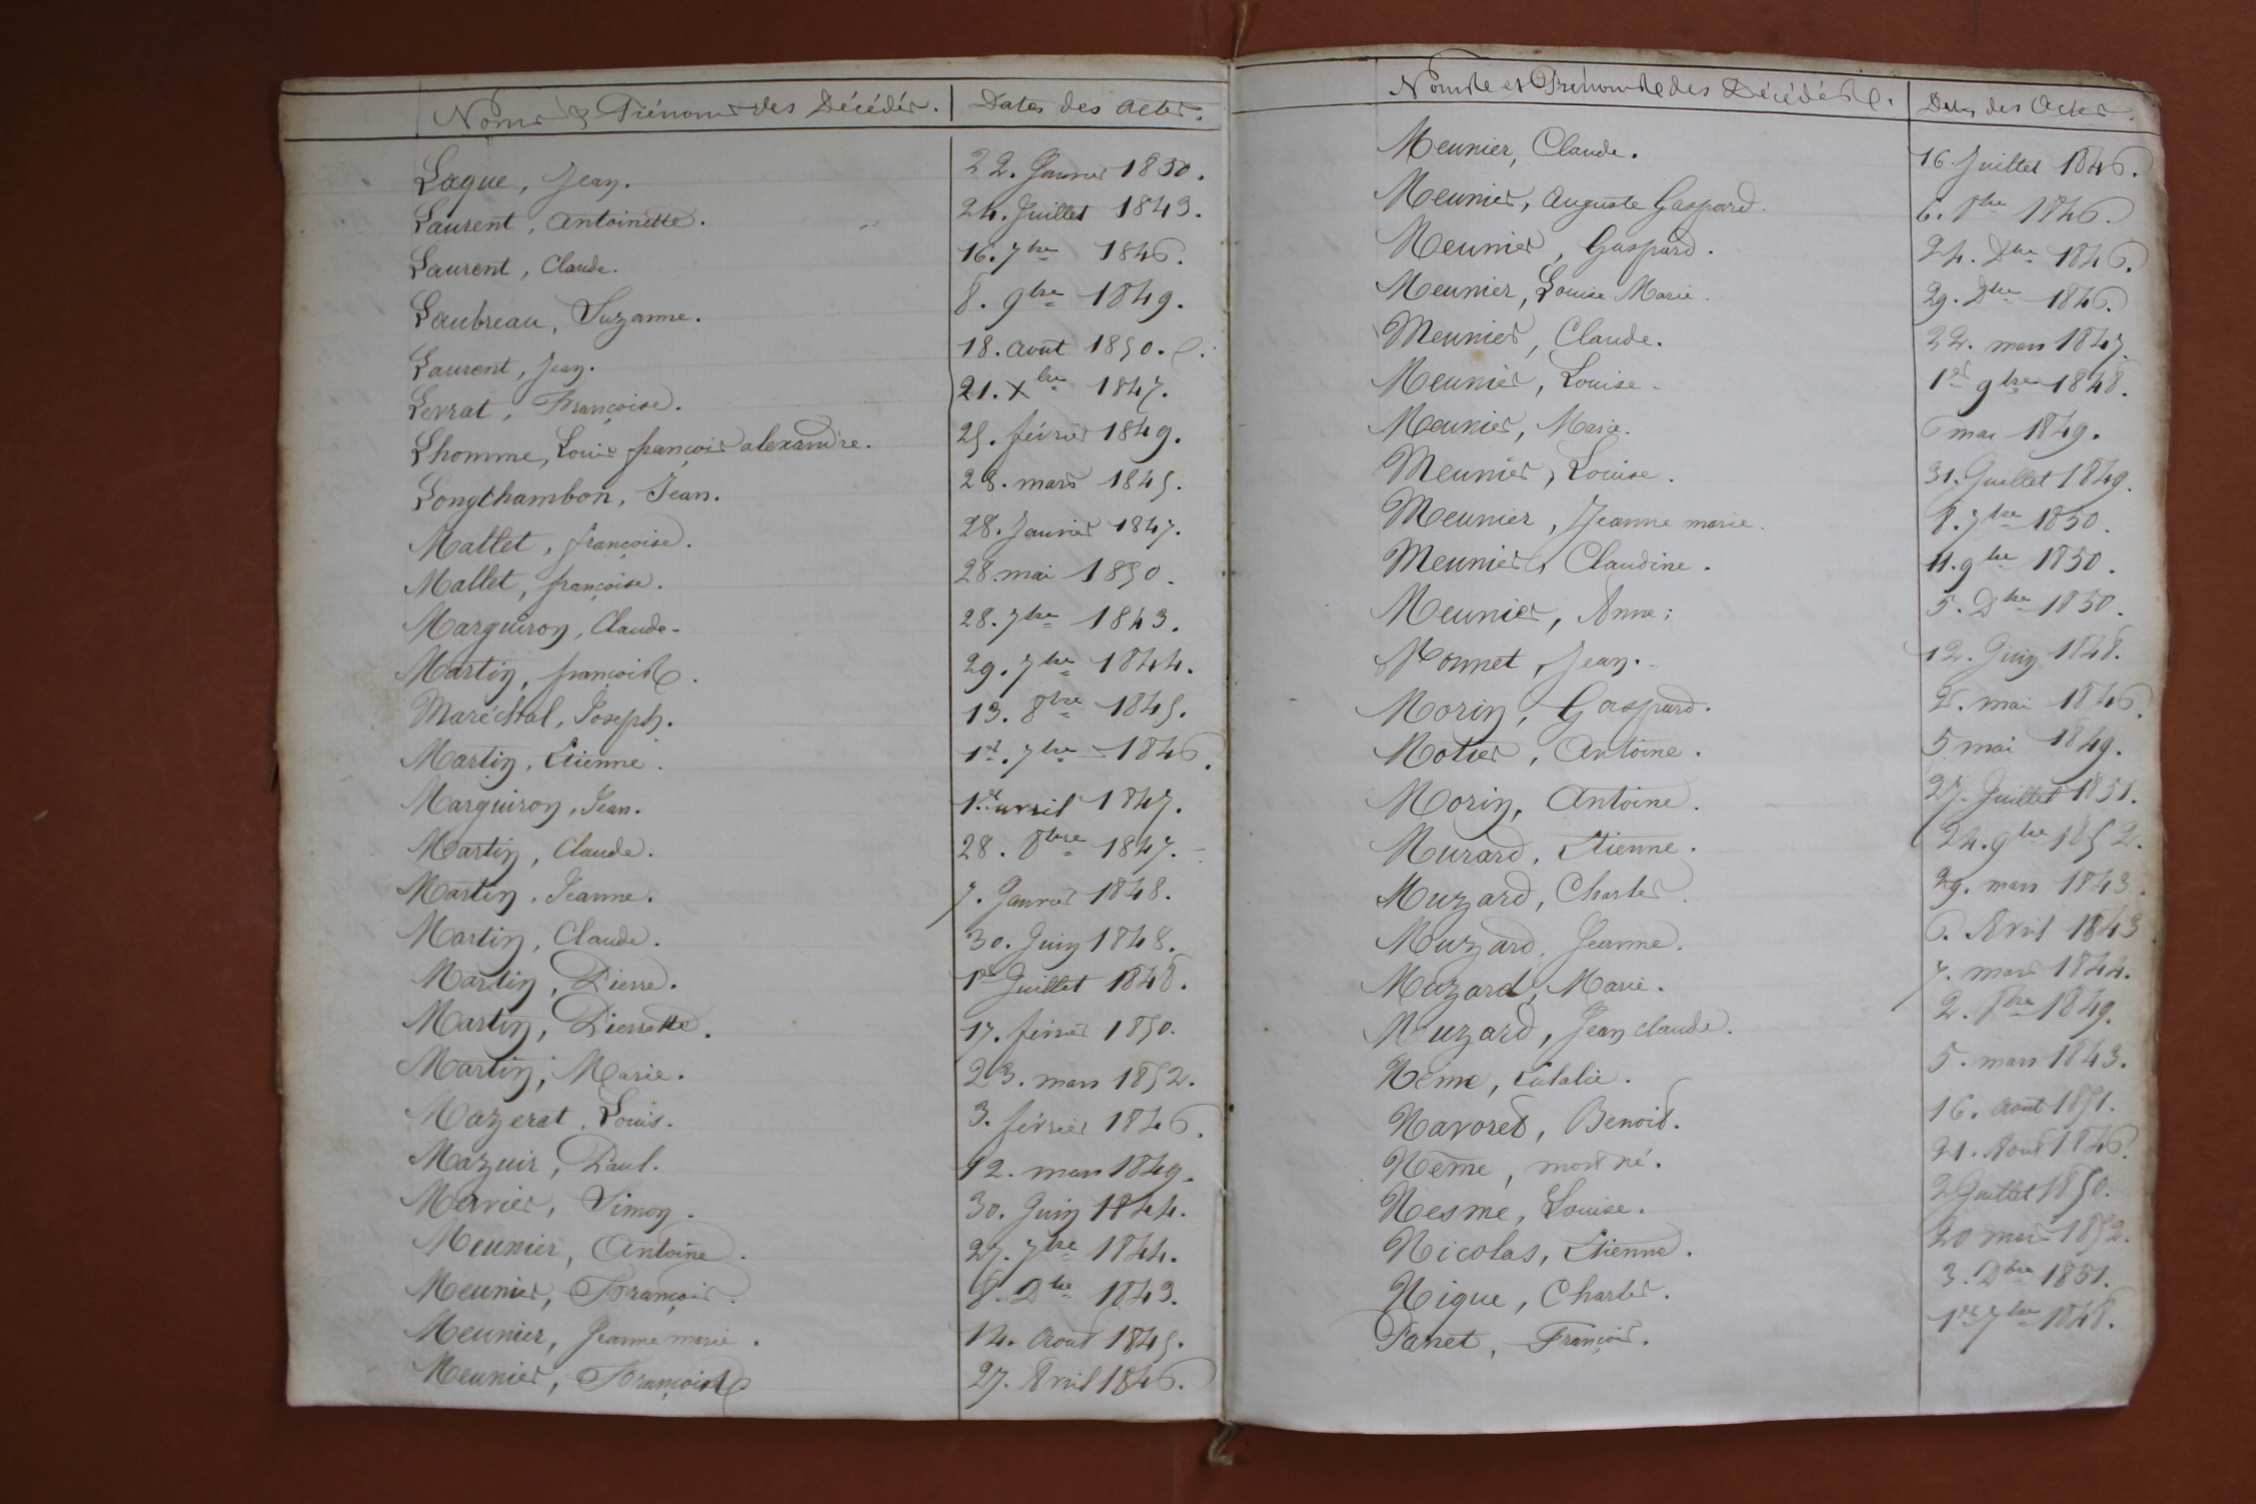 Noms & Prénoms des Décédés. Dates des actes.
Laque, Jean. 22. Janvier 1850.
Laurent, Antoinette. 24. Juillet 1843.
Laurent, Claude. 16. 7bre 1846.
Laubreau, Suzanne. 8. 9bre 1849.
Laurent, Jean. 18. août 1850.
Levrat, Françoise. 21. Xbre 1847.
Lhomme, Louis françois alexandre. 25. février 1849.
Longchambon, Jean. 28. mars 1845.
Mallet, françoise. 28. Janvier 1847.
Mallet, françoise. 28. mai 1850.
Marguiron, Claude. 28. 7bre 1843.
Martin, françois. 29. 7bre 1844.
Maréchal, Joseph. 13. 8bre 1845.
Martin, Etienne. 1er. 7bre 1846.
Marguiron, Jean. 1er. avril 1847.
Martin, Claude. 28. 8bre 1847.
Martin, Jeanne. 7. Janvier 1848.
Martin, Claude. 30. Juin 1848.
Martin, Pierre. 1er Juillet 1848.
Martin, Pierrette. 17. février 1850.
Martin, Marie. 23. mars 1852.
Mazerat, Louis. 3. février 1846.
Mazuir, Paul. 12. mars 1849.
Mervier, Simon. 30. Juin 1844.
Meunier, Antoine. 27. 7bre 1844.
Meunier, François. 8. Dbre 1843.
Meunier, Jeanne marie. 14. Août 1845.
Meunier, François 27. Avril 1846.
Noms et Prénoms des Décédés. Dates des Actes.
Meunier, Claude. 16. Juillet 1846.
Meunier, Auguste Gaspard. 6. 8bre 1846.
Meunier, Gaspard. 24. Dbre 1846.
Meunier, Louise Marie. 29. Dbre 1846.
Meunier, Claude. 22. mars 1847.
Meunier, Louise. 1er 9bre 1848.
Meunier, Marie. 6 mai 1849.
Meunier, Louise. 31. Juillet 1849.
Meunier, Jeanne marie. 8. 7bre 1850.
Meunier, Claudine. 11. 9bre 1850.
Meunier, Anne. 5. Dbre 1850.
Monnet, Jean. 12. Juin 1848.
Morin, Gaspard. 2. mai 1846.
Motier, Antoine. 5 mai 1849.
Morin, Antoine. 27. Juillet 1851.
Murard, Etienne. 24. 9bre 1852.
Muzard, Charles. 29. mars 1843.
Muzard, Jeanne. 6. Avril 1843
Muzard, Marie. 7. mars 1844.
Muzard, Jean claude. 2. 8bre 1849.
Neme, Eulalie. 5. mars 1843.
Navoret, Benoit. 16. Août 1851.
Neme, mort né. 21. Août 1846.
Nesme, Louise. 2 Juillet 1850.
Nicolas, Etienne. 20 mai 1852.
Nique, Charles. 3. Dbre 1851.
Panet, François. 1er 7bre 1848.